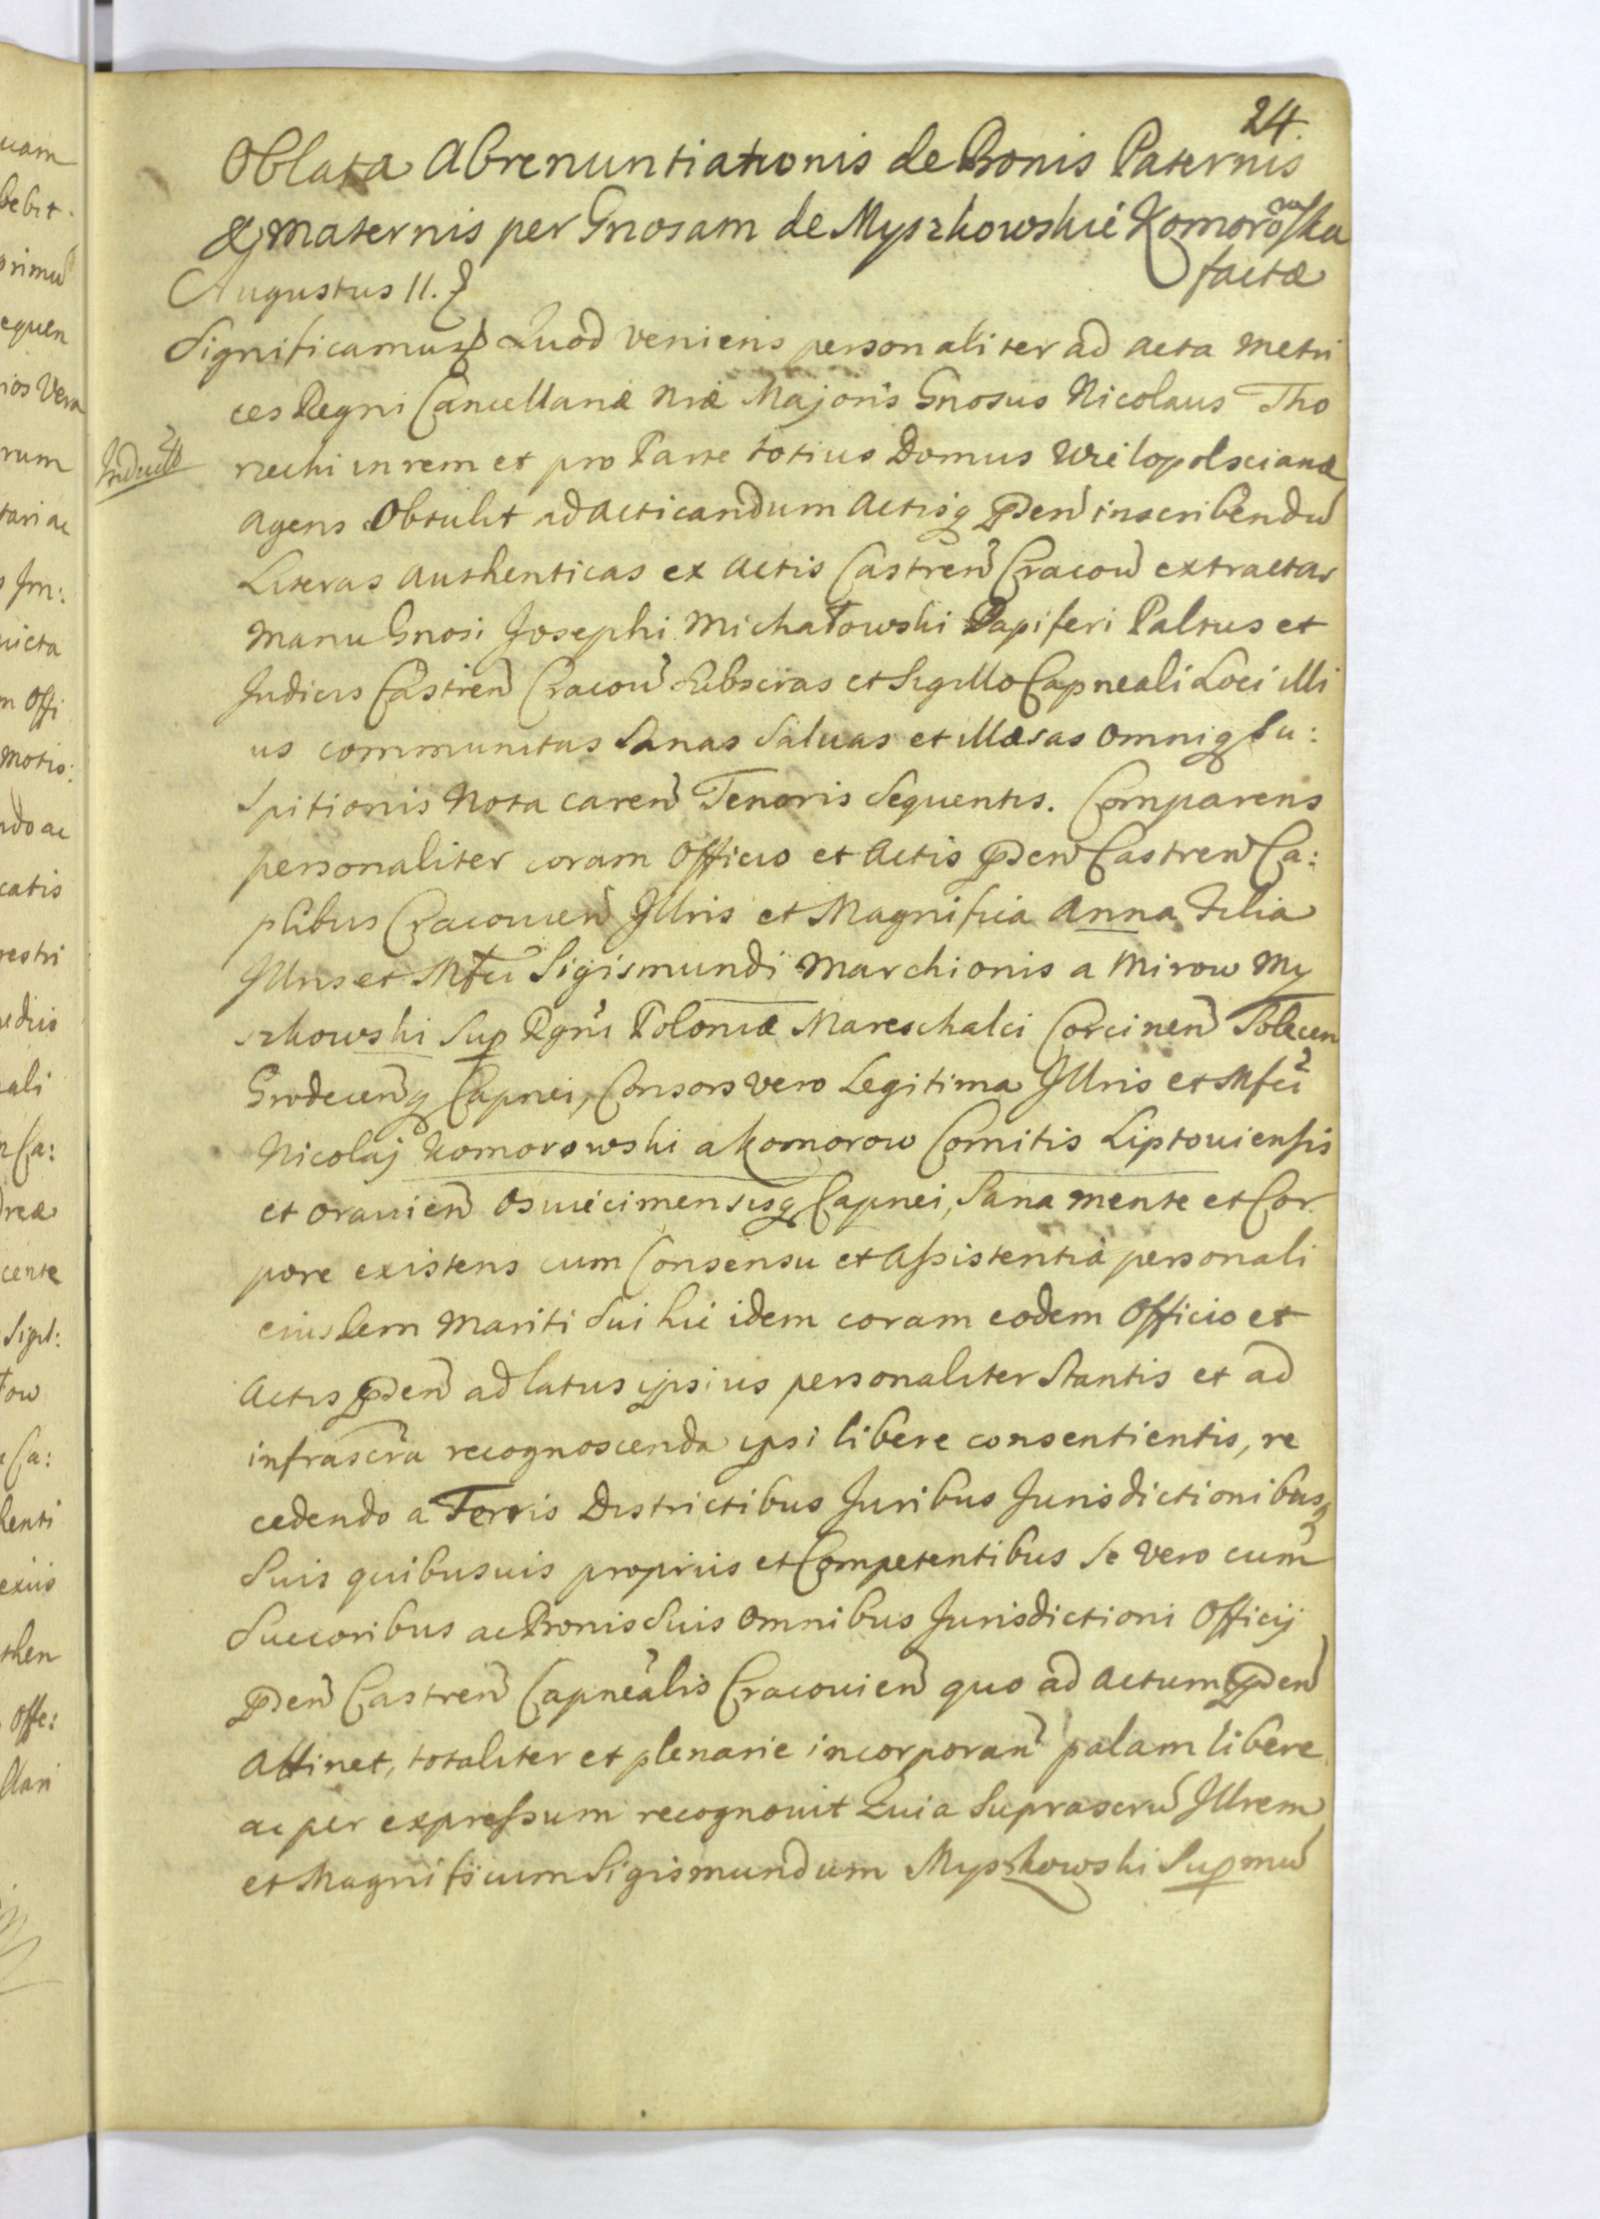 24.
Oblata Abrenuntiationis de Bonis Paternis
& maternis per Gnosam de Myszkowskie Komorowska
factæ
Augustus II.
Significamus Quod veniens personaliter ad acta metri
ces Regni Cancellariæ nræ Majoris Gnosus Nicolaus Tho
rzecki in rem et pro Parte totius Domus Wielopolscianæ
agens obtulit ad acticandum actisq pden inscribendu
Literas authenticas ex actis Castren Cracou extractas
manu Gnosi Josephi Michałowski Dapiferi Paltus et
Judicis Castren Cracou subscras et sigillo Capneali Loci illi
us communitas sanas saluas et illæsas omniq su:
spitionis nota caren Tenoris sequentis. Comparens
personaliter coram officio et actis pden Castren Ca:
plibus Cracouien Jllris et Magnifica Anna Filia
Jllris et Mfci Sigismundi Marchionis a Mirow My
szkowski Sup Rgni Poloniæ Mareschalci Corcinen Solecen
Grodecenq Capnei, Consors vero Legitima Jllris et Mfci
Nicolaj Komorowski a Komorow Comitis Liptouiensis
et orauien osuiecimensisq Capnei, sana mente et Cor
pore existens cum Consensu et assistentia personali
eiusdem mariti sui hic idem coram eodem officio et
actis pden ad latus ipsius personaliter stantis et ad
infrascra recognoscenda ipsi libere consentientis, re
cedendo a Terris Districtibus Juribus Jurisdictionibusq
suis quibusuis propriis et Competentibus se vero cum
succoribus ac Bonis suis omnibus Jurisdictioni officij
pden Castren Capnealis Cracouien quo ad actum pden
attinet, totaliter et plenarie incorporan palam libere
ac per expressum recognouit Quia suprascru Jllrem
et Magnificum Sigismundum Myszkowski Supmu